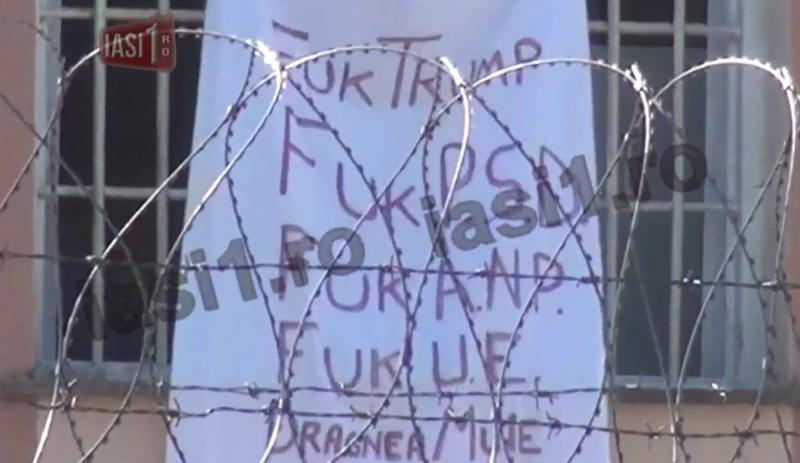 IASI 1 RO
FUK TRUMP
FUK PSD
FUK A.N.P.
FUK U.E.
DRAGNEA/MUIE
iasi1.ro
iasi1.ro
iasi1.ro